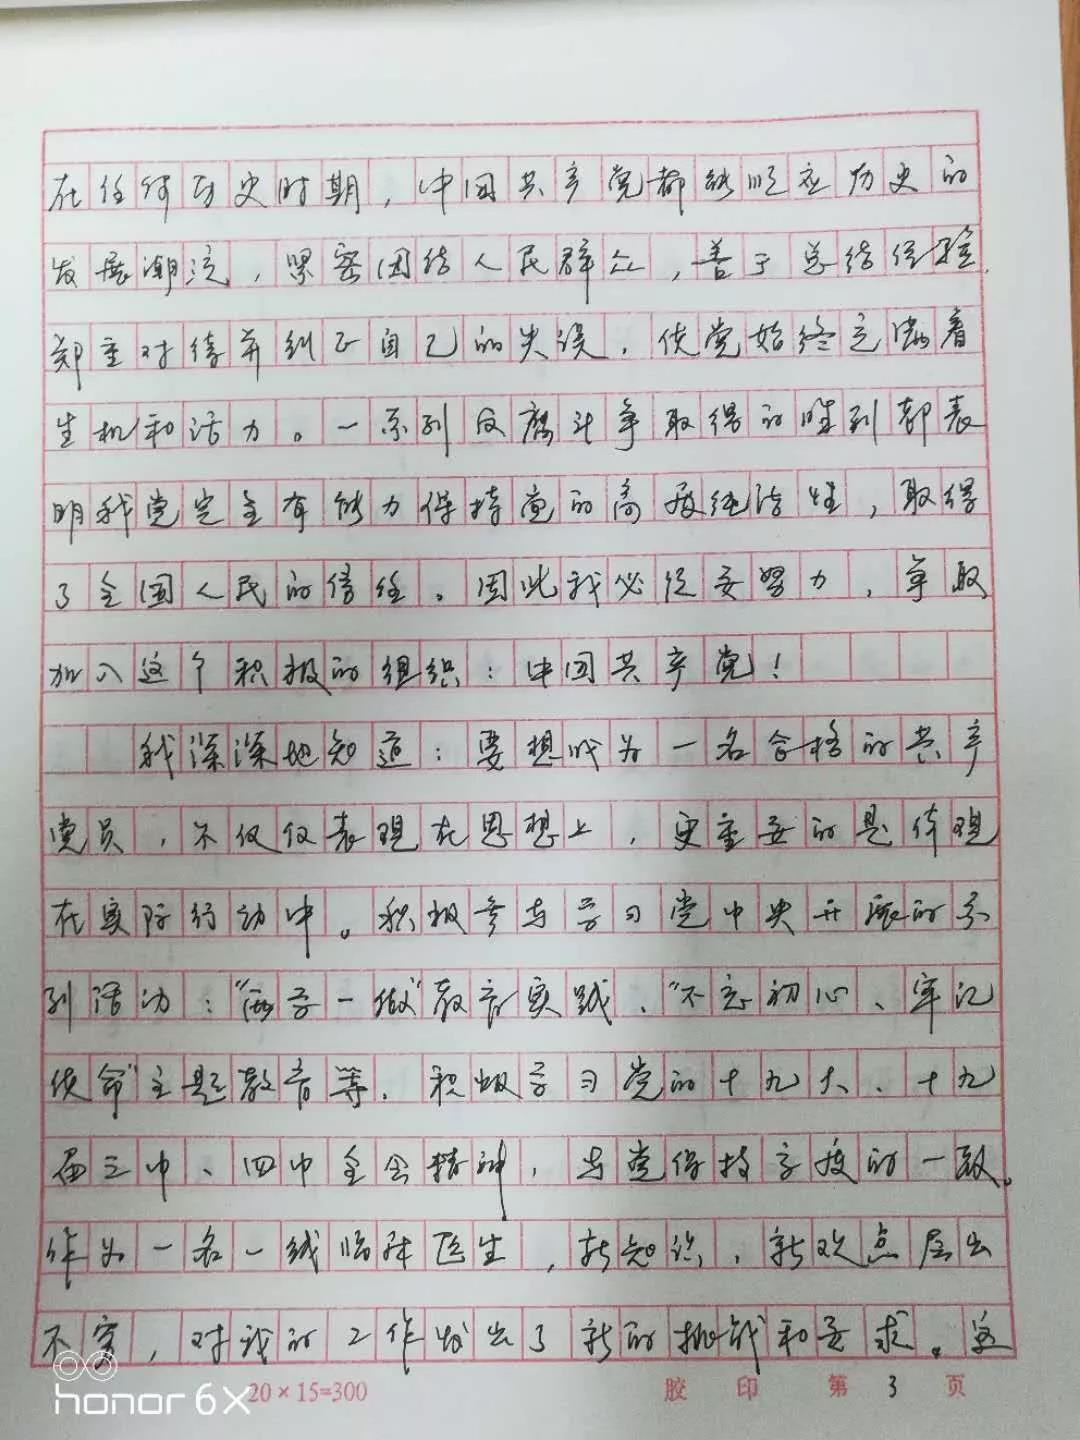 在任何历史时期，中国共产党都能顺应历史的
发展潮流，紧密团结人民群众，善于总结经验，
郑重对待并纠正自己的失误，使党始终充满着
生机和活力。一系列反腐斗争取得的胜利都表
明我党完全有能力保持党的高度纯洁性，取得
了全国人民的信任。因此我必须要努力，争取
加入这个积极的组织：中国共产党！
我深深地知道：要想成为一名合格的共产
党员，不仅仅表现在思想上，更重要的是体现
在实际行动中。积极参与学习党中央开展的系
列活动："两学一做"教育实践、"不忘初心、牢记
使命"主题教育等，积极学习党的十九大、十九
届三中、四中全会精神，与党保持高度的一致。
作为一名一线临床医生，新知识，新观点层出
不穷，对我的工作发出了新的挑战和要求。这
20×15=300 胶印 第3页
honor 6X